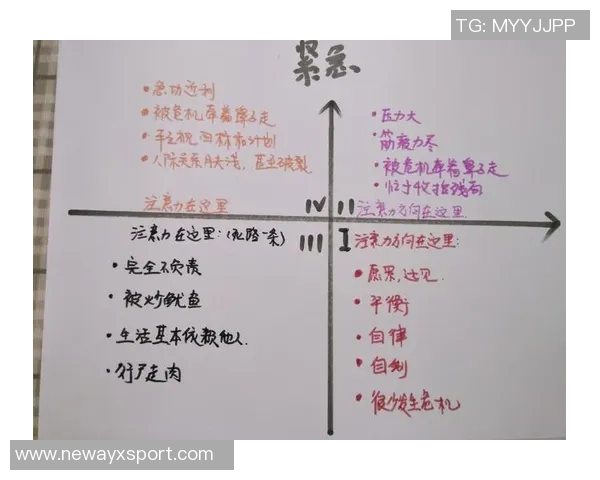 TG: MYYJJPP
紧急
• 急功近利
• 被危机牵着鼻子走
• 平主视目标和计划
• 人际关系肤浅，甚至破裂
注意力在这里
IV
• 压力大
• 筋疲力尽
• 被危机牵着鼻子走
• 忙于收拾残局
II
注意力方向在这里
注意力在这里：(死路一条)
III
• 完全不负责
• 被炒鱿鱼
• 生活基本依赖他人.
• 行尸走肉
I
注意力方向在这里：
• 愿景，远见.
• 平衡
• 自律
• 自制
• 很少发生危机
www.newayxsport.com